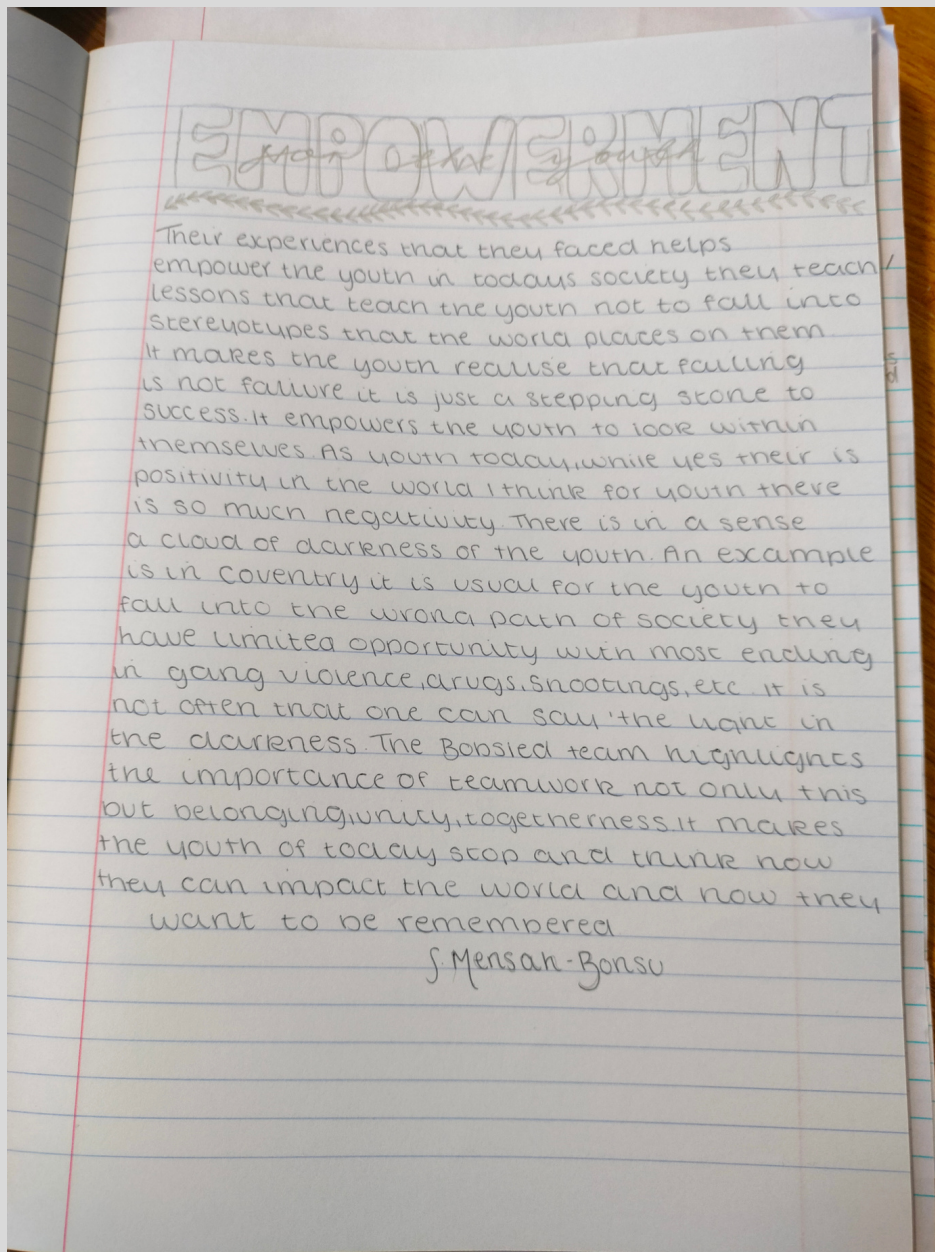 EMPOWERMENT
Their experiences that they faced helps
empower the youth in todays society they teach
lessons that teach the youth not to fall into
stereotypes that the world places on them
it makes the youth realise that failing
is not failure it is just a stepping stone to
success. It empowers the youth to look within
themselves. As youth today, while yes their is
positivity in the world I think for youth there
is so much negativity. There is in a sense
a cloud of darkness of the youth. An example
is in Coventry it is usual for the youth to
fall into the wrong path of society they
have limited opportunity with most ending
in gang violence, drugs, shootings, etc. It is
not often that one can say 'the light in
the darkness. The Bobsled team highlights
the importance of teamwork not only this
but belonging, unity, togetherness. It makes
the youth of today stop and think how
they can impact the world and how they
want to be remembered
S. Mensah-Bonsu